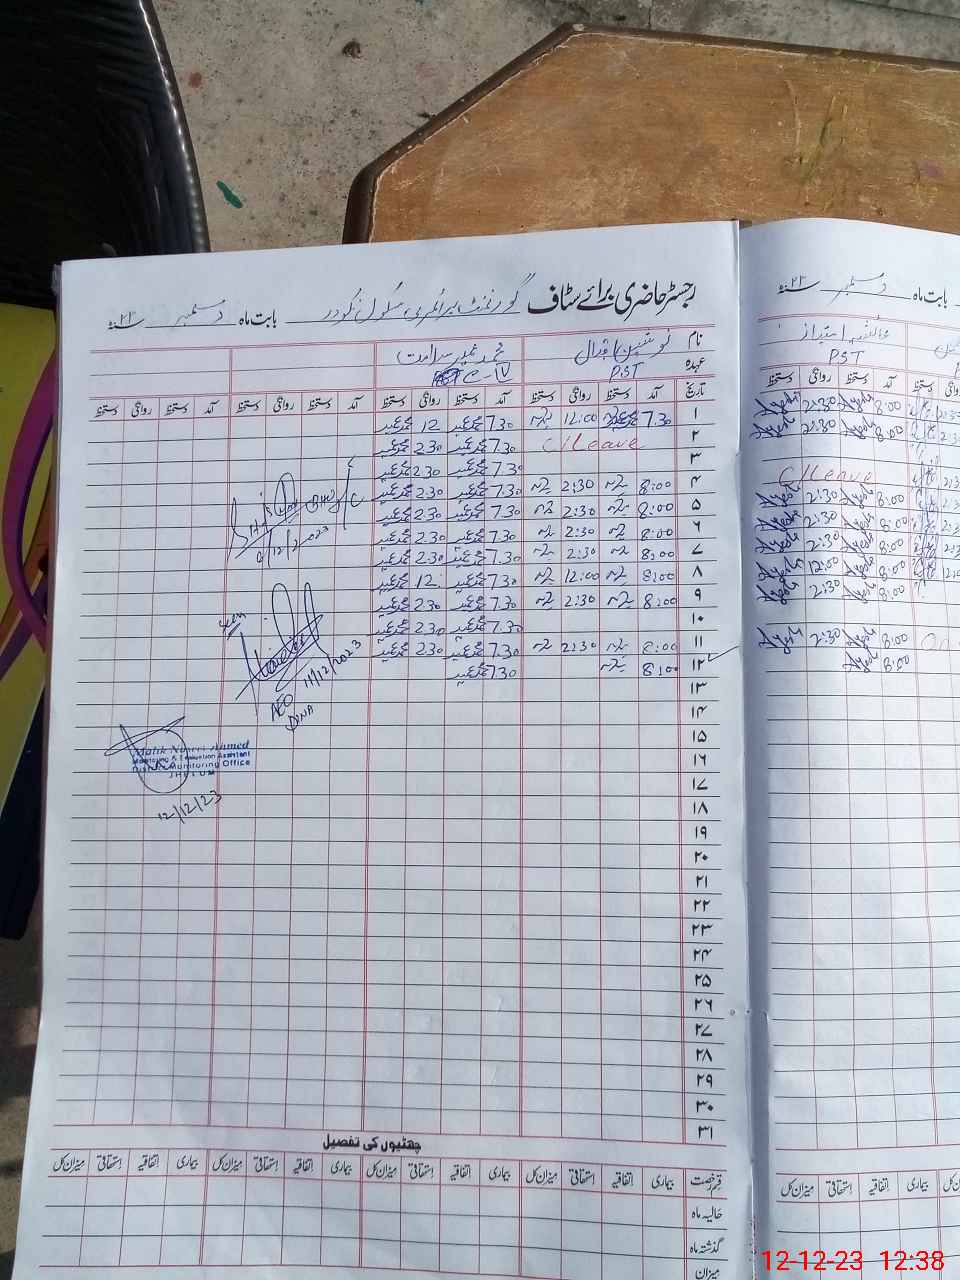 رجسٹر حاضری برائے سٹاف گورنمنٹ پرائمری سکول نکودر بابت ماہ دسمبر سنہ ۲۳
نام نوشین اقبال محمد عمیر سلامت
عہدہ PST C-IV
تاریخ آمد دستخط روانگی دستخط آمد دستخط روانگی دستخط آمد دستخط روانگی دستخط آمد دستخط روانگی دستخط
۱ 7.30 12:00 7.30 محمد عمیر 12 محمد عمیر
۲ C/Leave 7.30 محمد عمیر 2.30 محمد عمیر
۳ 7.30 محمد عمیر 2.30 محمد عمیر
۴ 8:00 2:30 7.30 محمد عمیر 2.30 محمد عمیر
۵ 8:00 2:30 7.30 محمد عمیر 2.30 محمد عمیر
۶ 8:00 2:30 7.30 محمد عمیر 2.30 محمد عمیر
۷ 8:00 2:30 7.30 محمد عمیر 2.30 محمد عمیر
۸ 8:00 12:00 7.30 محمد عمیر 12 محمد عمیر
۹ 8:00 2:30 7.30 محمد عمیر 2.30 محمد عمیر
۱۰ 7.30 محمد عمیر 2.30 محمد عمیر
۱۱ 8:00 2:30 7.30 محمد عمیر 2.30 محمد عمیر
۱۲ 8:00 7.30 محمد عمیر
۱۳
۱۴
۱۵
۱۶
۱۷
۱۸
۱۹
۲۰
۲۱
۲۲
۲۳
۲۴
۲۵
۲۶
۲۷
۲۸
۲۹
۳۰
۳۱
11/12/2023
AEO
DINA
Monitoring & Evaluation Assistant
District Monitoring Office
JHELUM
12/12/23
چھٹیوں کی تفصیل
قسم رخصت بیماری اتفاقیہ استحقاقی میزان کل بیماری اتفاقیہ استحقاقی میزان کل بیماری اتفاقیہ استحقاقی میزان کل بیماری اتفاقیہ استحقاقی میزان کل
حالیہ ماہ
گذشتہ ماہ
میزان
بابت ماہ دسمبر سنہ ۲۳
PST
آمد دستخط روانگی دستخط
8:00 Ayesh 2:30 Ayesh
8:00 Ayesh 2:30 Ayesh
C/Leave
8:00 Ayesh 2:30 Ayesh
8:00 Ayesh 2:30 Ayesh
8:00 Ayesh 2:30 Ayesh
8:00 Ayesh 12:00 Ayesh
8:00 Ayesh 2:30 Ayesh
8:00 Ayesh 2:30 Ayesh
8:00 Ayesh
بیماری اتفاقیہ استحقاقی میزان کل
12-12-23 12:38